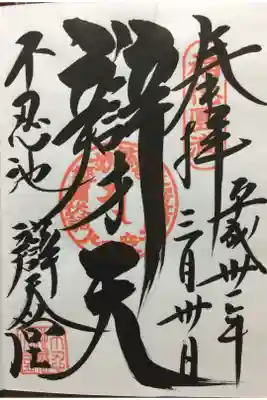 奉拝
平成卅一年
三月卅日
辯才天
不忍池 辯天堂